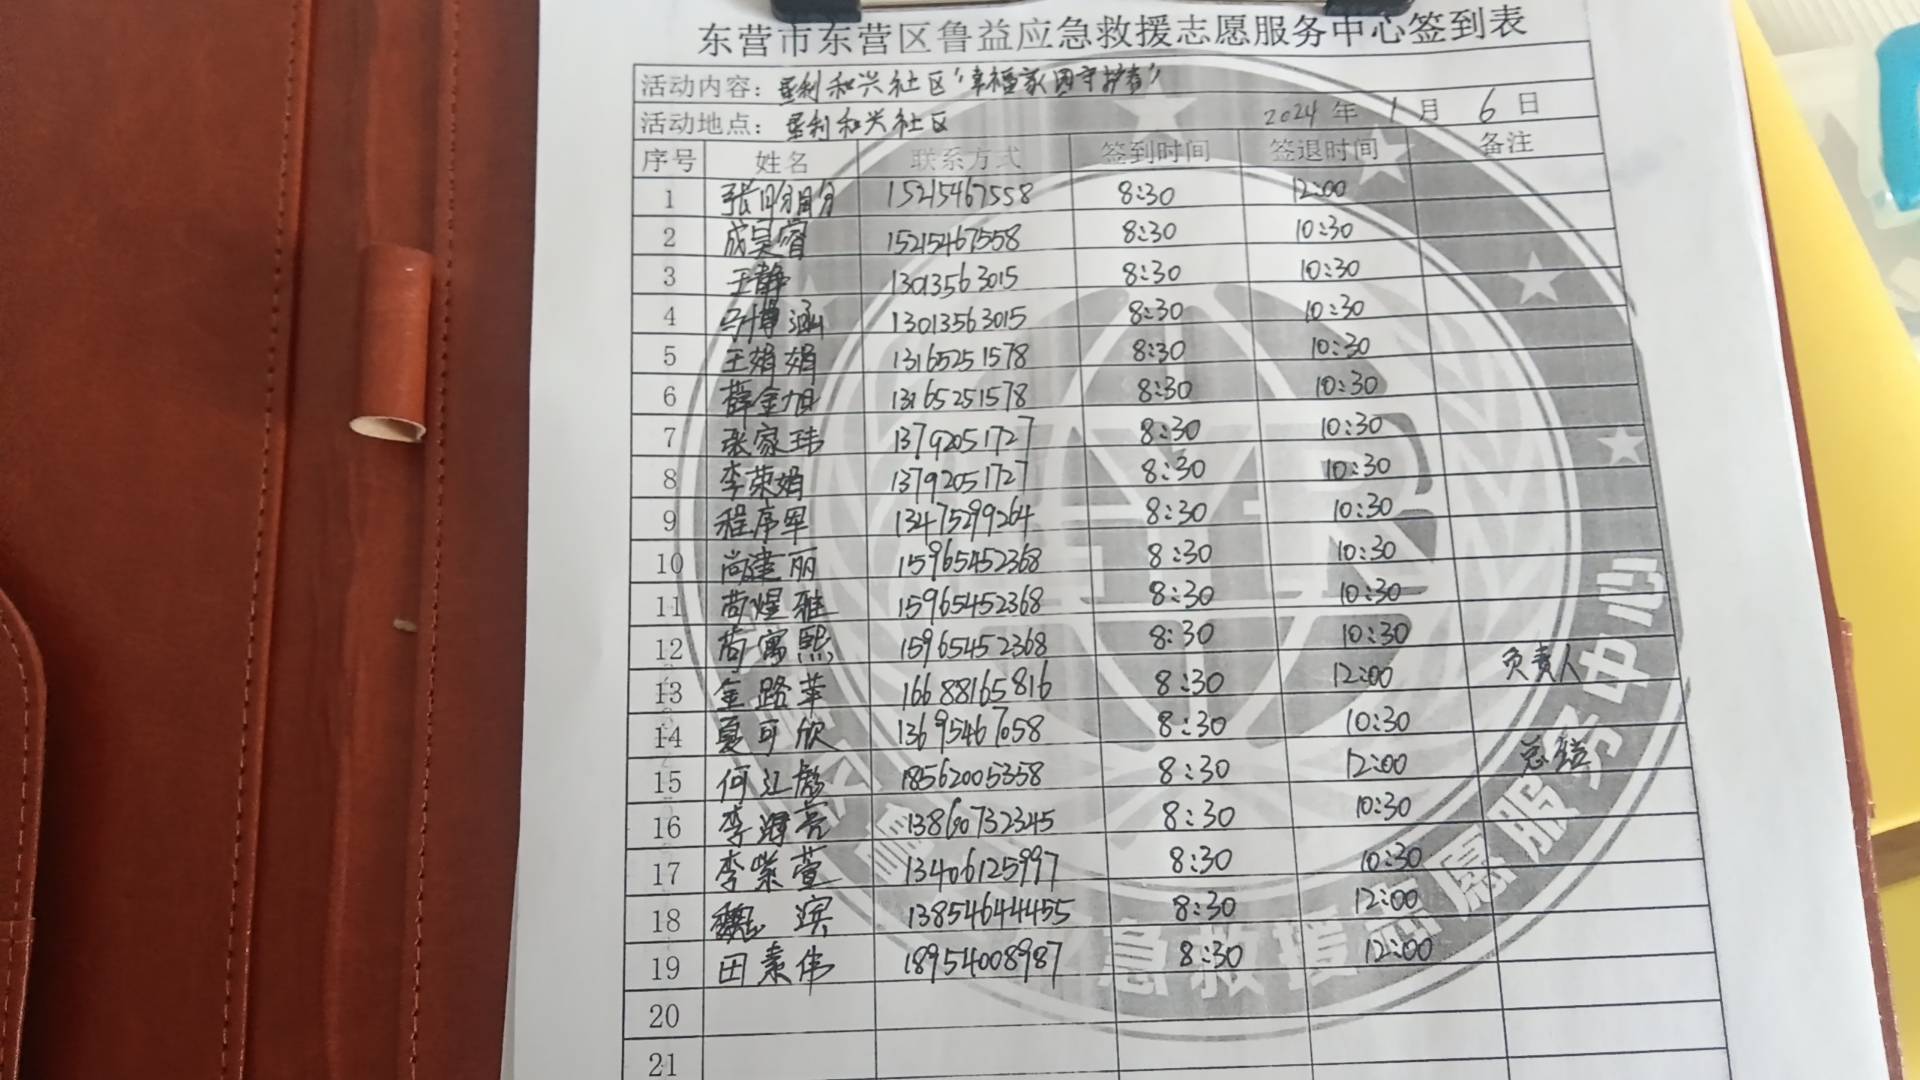 东营市东营区鲁益应急救援志愿服务中心签到表
活动内容：垦利和兴社区“幸福家园守护者”
活动地点：垦利和兴社区 2024年1月6日
序号 姓名 联系方式 签到时间 签退时间 备注
1 张盼盼 15215467558 8:30 12:00
2 成昊睿 15215467558 8:30 10:30
3 王静 13013563015 8:30 10:30
4 马博涵 13013563015 8:30 10:30
5 王娟娟 13165251578 8:30 10:30
6 薛金旭 13165251578 8:30 10:30
7 张家玮 13792051727 8:30 10:30
8 李荣娟 13792051727 8:30 10:30
9 程序军 13475299264 8:30 10:30
10 尚建丽 15965452368 8:30 10:30
11 苟煜雅 15965452368 8:30 10:30
12 苟寓熙 15965452368 8:30 10:30
13 金路苹 16688165816 8:30 12:00 负责人
14 夏可欣 13695467058 8:30 10:30
15 何江彪 18562005358 8:30 12:00 总结
16 李海亮 13860732345 8:30 10:30
17 李紫萱 13406125997 8:30 10:30
18 魏滨 13854644455 8:30 12:00
19 田素伟 18954008987 8:30 12:00
20
21
急救援志愿服务中心